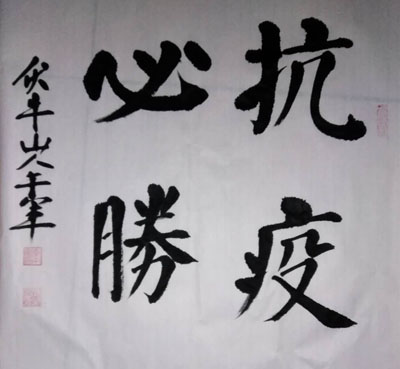 抗疫
必勝
伏牛山人